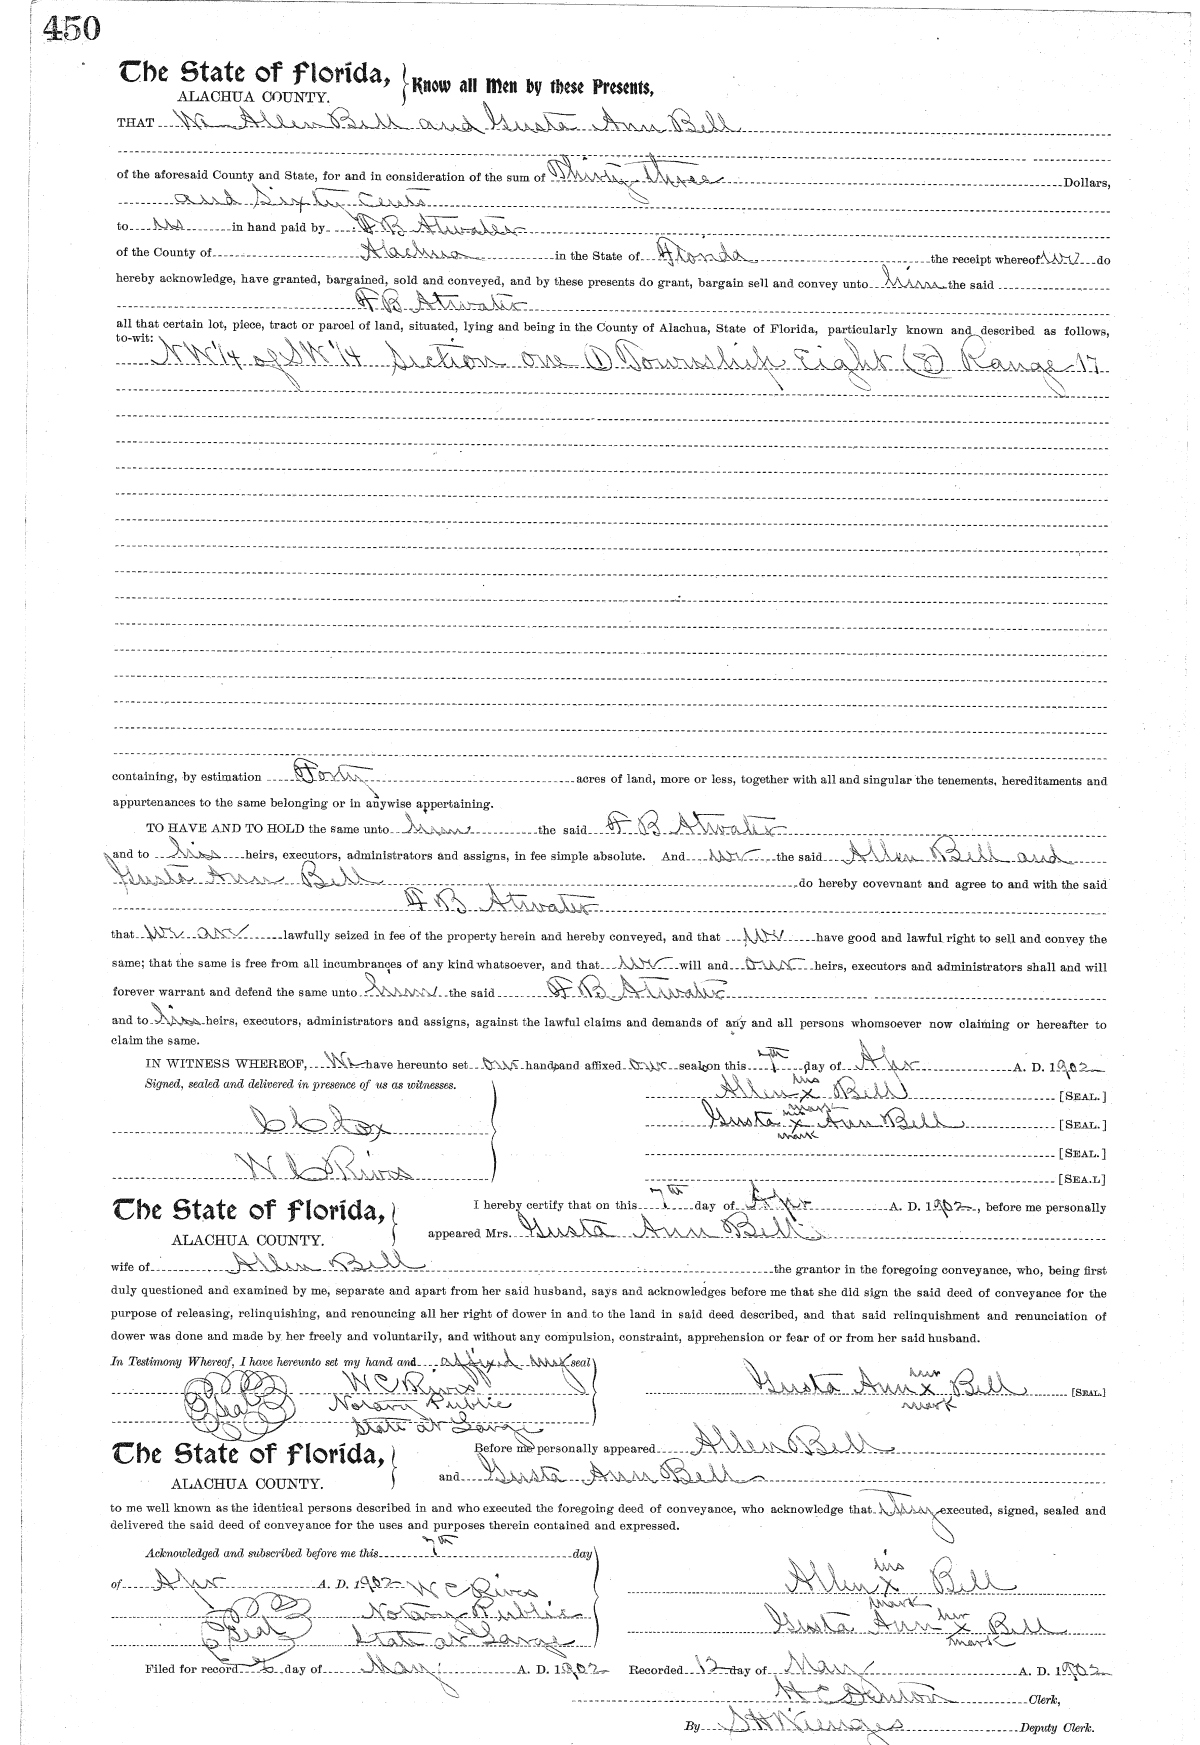 450
The State of Florida, } Know all Men by these Presents,
ALACHUA COUNTY.
THAT We Allen Bell and Gusta Ann Bell
of the aforesaid County and State, for and in consideration of the sum of Thirty three Dollars,
and Sixty Cents
to us in hand paid by F B Atwater
of the County of Alachua in the State of Florida the receipt whereof we do
hereby acknowledge, have granted, bargained, sold and conveyed, and by these presents do grant, bargain sell and convey unto him the said
F B Atwater
all that certain lot, piece, tract or parcel of land, situated, lying and being in the County of Alachua, State of Florida, particularly known and described as follows,
to-wit:
NW 1/4 of SW 1/4 Section one (1) Township Eight (8) Range 17
containing, by estimation Forty acres of land, more or less, together with all and singular the tenements, hereditaments and
appurtenances to the same belonging or in anywise appertaining.
TO HAVE AND TO HOLD the same unto him the said F B Atwater
and to his heirs, executors, administrators and assigns, in fee simple absolute. And we the said Allen Bell and
Gusta Ann Bell do hereby covevnant and agree to and with the said
F B Atwater
that we are lawfully seized in fee of the property herein and hereby conveyed, and that we have good and lawful right to sell and convey the
same; that the same is free from all incumbrances of any kind whatsoever, and that we will and our heirs, executors and administrators shall and will
forever warrant and defend the same unto him the said F B Atwater
and to his heirs, executors, administrators and assigns, against the lawful claims and demands of any and all persons whomsoever now claiming or hereafter to
claim the same.
IN WITNESS WHEREOF, We have hereunto set our hands and affixed our seals on this 7th day of Apr A. D. 1902
Signed, sealed and delivered in presence of us as witnesses.
Allen his x mark Bell [SEAL.]
C C Cox
Gusta her x mark Ann Bell [SEAL.]
[SEAL.]
W C Rives
[SEA.L]
The State of Florida, } I hereby certify that on this 7th day of Apr A. D. 1902, before me personally
ALACHUA COUNTY. appeared Mrs. Gusta Ann Bell
wife of Allen Bell the grantor in the foregoing conveyance, who, being first
duly questioned and examined by me, separate and apart from her said husband, says and acknowledges before me that she did sign the said deed of conveyance for the
purpose of releasing, relinquishing, and renouncing all her right of dower in and to the land in said deed described, and that said relinquishment and renunciation of
dower was done and made by her freely and voluntarily, and without any compulsion, constraint, apprehension or fear of or from her said husband.
In Testimony Whereof, I have hereunto set my hand and affixed my seal
Seal W C Rives
Gusta Ann her x mark Bell [SEAL]
Notary Public
State at Large
The State of Florida, } Before me personally appeared Allen Bell
ALACHUA COUNTY. and Gusta Ann Bell
to me well known as the identical persons described in and who executed the foregoing deed of conveyance, who acknowledge that They executed, signed, sealed and
delivered the said deed of conveyance for the uses and purposes therein contained and expressed.
Acknowledged and subscribed before me this 7th day
of Apr A. D. 1902 W C Rives
Allen his x mark Bell
Seal Notary Public
Gusta Ann her x mark Bell
State at Large
Filed for record 2 day of May A. D. 1902 Recorded 12 day of May A. D. 1902
H C Denton Clerk,
By S H Wienges Deputy Clerk.